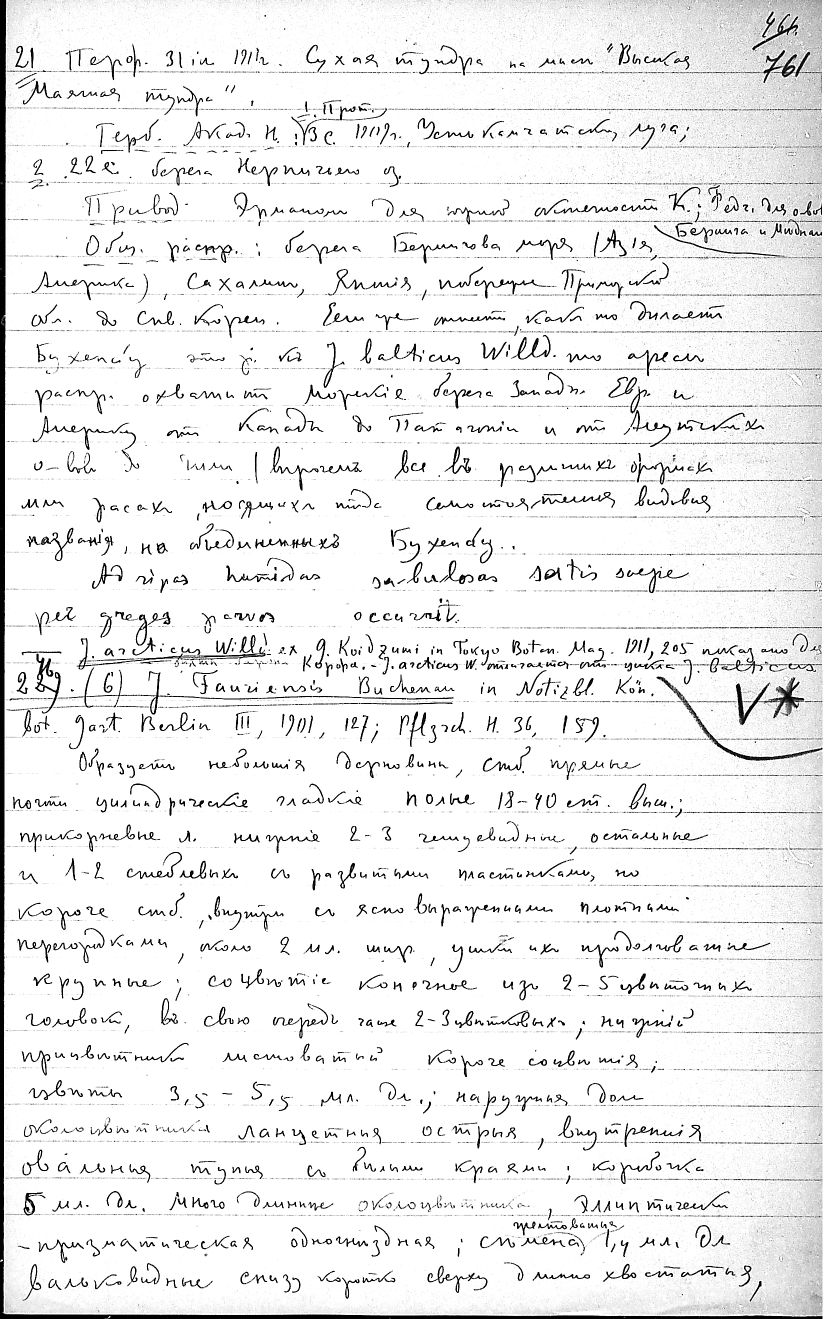 466
761
21. Перф. 31 іл 1911г. Сухая тундра на мысе "Высокая
"Маячная тундра".
1. Прот.
Герб. Акад. Н. : 1909г., Усть камчатские луга;
2 22 берега Нерпичьего оз.
Привод. Эрманом для южной К.; Редг. для о-вов
Беринга и Медный
Общ. распр.: берега Берингова моря (Азія,
Америка), Сахалин, Японія, побережье Приморской
обл. до Сѣв. Кореи. Если же какъ то дѣлаетъ
Бухенау къ J. balticus Willd. то ареал
распр. охватит морскіе берега Западн. Евр. и
Америку от Канады до Патагоніи и от Алеутскихъ
о-вовъ до Чили (впрочемъ все въ различныхъ формахъ
или расахъ, носящихъ тогда самостоятельныя видовыя
названія, но объединенныхъ Бухенау..
Ad ripas humidas sabulosas satis saepe
per greges parvos occurrit.
J. arcticus Willd ex G. Koidzumi in Tokyo Botan. Mag. 1911, 205 показано для
Корфа. - J. arcticus W. отличается от цикла J. balticus
229. (6) J. Fauriensis Buchenau in Notizbl. Kön.
bot. Gart. Berlin III, 1901, 127; Pflzrch. H. 36, 159.
V *
Образуетъ небольшія дерновины, стб. прямые
почти цилиндрическіе гладкіе полые 18-40 ст. выш.;
прикорневые л. нижніе 2-3 чешуевидные, остальные
и 1-2 стеблевыхъ съ развитыми пластинками, но
короче стб., внутри съ ясно выраженными плотными
перегородками, около 2 мл. шир., ушки ихъ продолговатые
крупные; соцвѣтіе конечное изъ 2-5 цвѣточныхъ
головокъ, въ свою очередь чаще 2-3 цвѣтковыхъ; нижній
прицвѣтникъ листоватый короче соцвѣтія;
цвѣты 3,5 - 5,5 мл. дл.; наружныя доли
околоцвѣтника ланцетныя острыя, внутреннія
овальныя тупыя съ бѣлыми краями; коробочка
5 мл. дл. много длиннѣе околоцвѣтника, эллиптически
желтоватыя
-призматическая одногнѣздная; сѣмена 1,4 мл. дл
вальковидные снизу коротко сверху длинно хвостатыя,